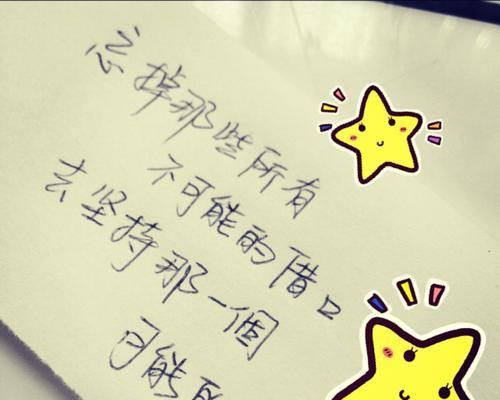 忘掉那些所有
不可能的借口
去坚持那一個
可能的